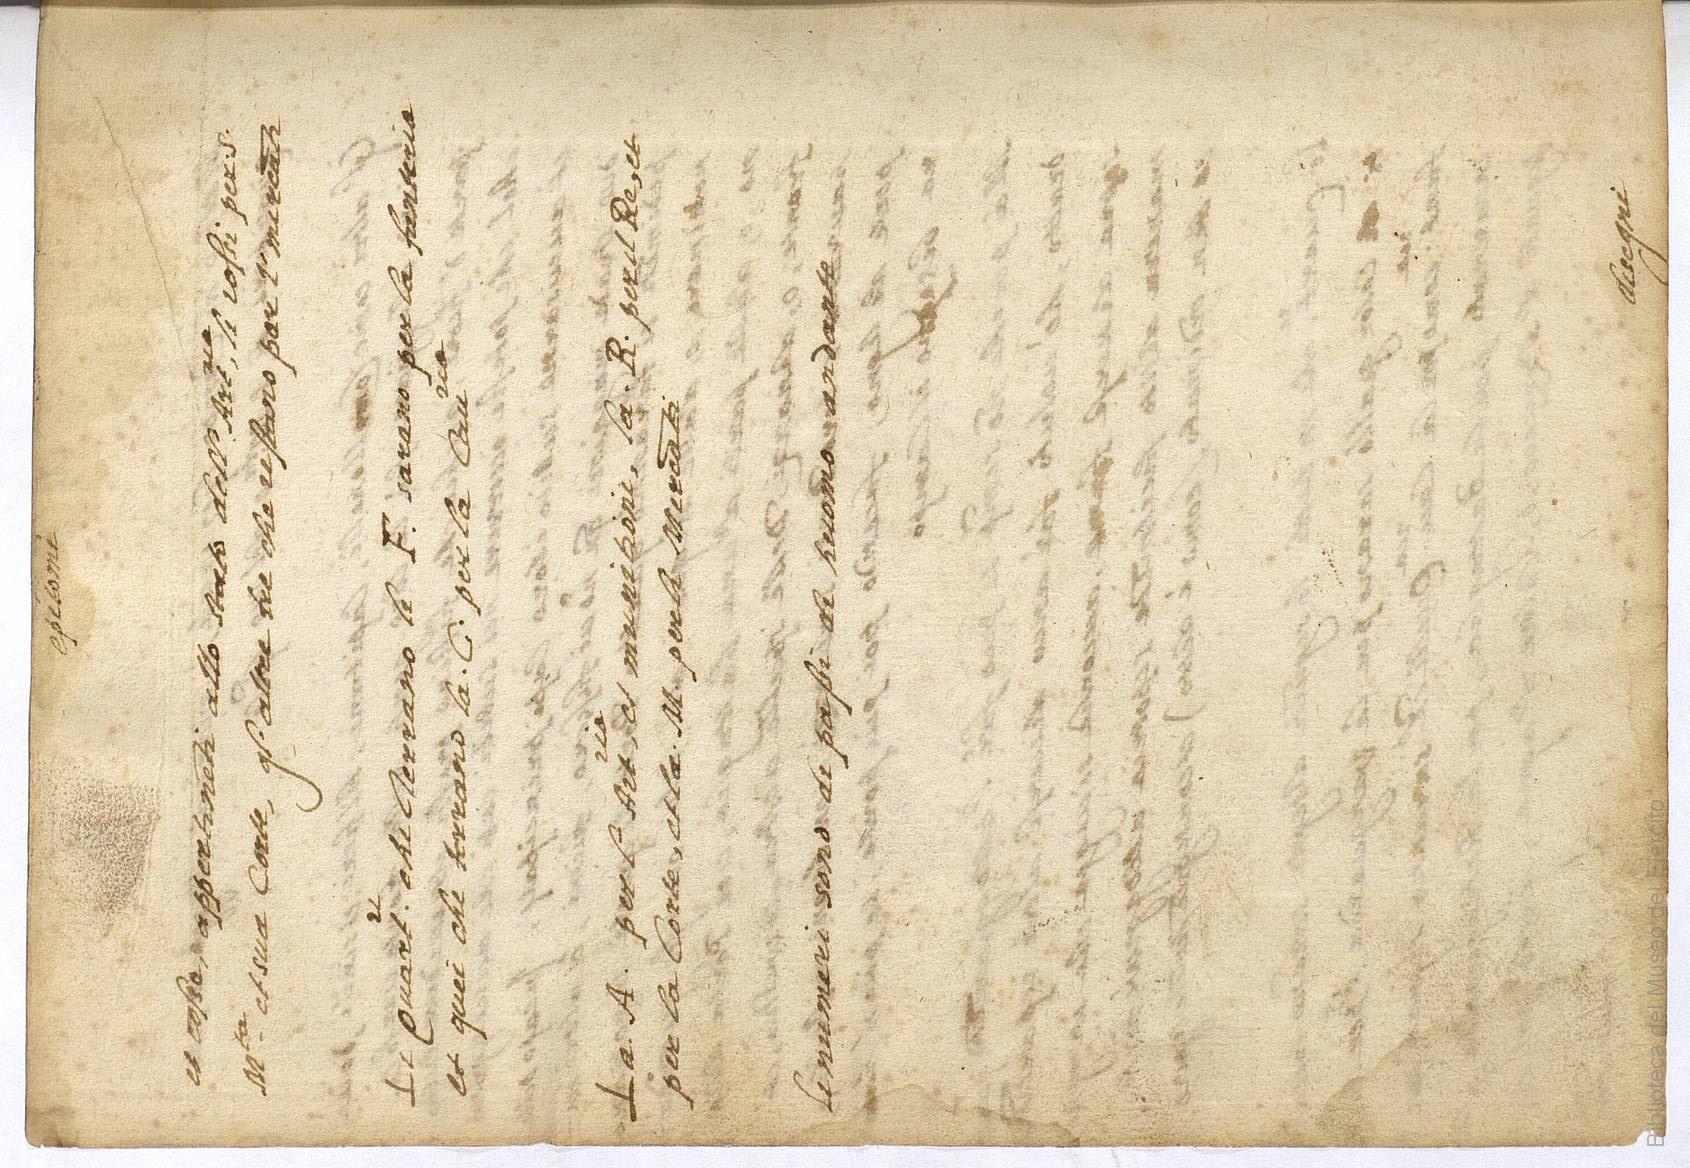 epitomi
et cassa, appertinēti allo stato dell' Art.ria, li rossi per s.
M.ta et sua Corte, gl' altre tre che restano per l' mircāti
Li quart.i che Verrano le F. sarano per la fanteria
et quei che terrano la. C. per la Cau.ria
La. A. per l' Art.ria, et munitioni, la. R. per il Re, et
per la Corte, et la. M. per li Mercāti
Le numeri sono de passi de huomo andante
disegni
Biblioteca del Museo del Ejército